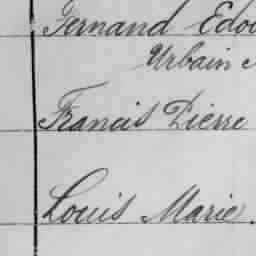 Fernand Edou
Urbain
Francis Pierre
Louis Marie.